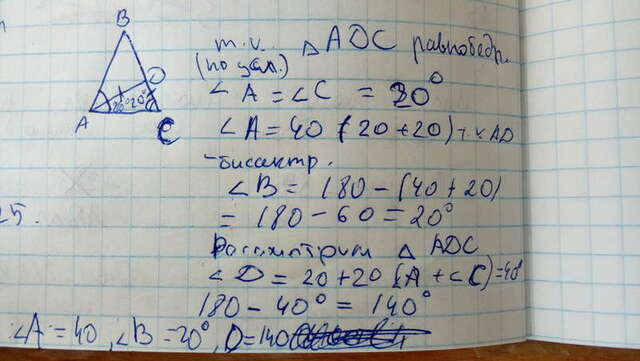 B
D
20° 20°
A
C
т.к. △ ADC равнобедр.
(по усл.)
∠A = ∠C = 20°
∠A = 40 (20+20) т.к AD
-биссектр.
∠B = 180 - (40+20)
= 180 - 60 = 20°
Рассмотрим △ ADC
∠D = 20+20 (A + ∠C) = 40°
180 - 40° = 140°
25.
∠A = 40, ∠B = 20°, D = 140